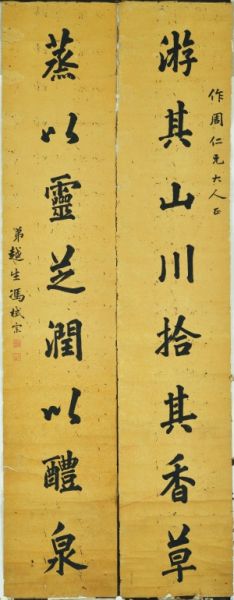 作周仁兄大人正
游其山川拾其香草
蒸以靈芝潤以醴泉
弟越生馮栻宗